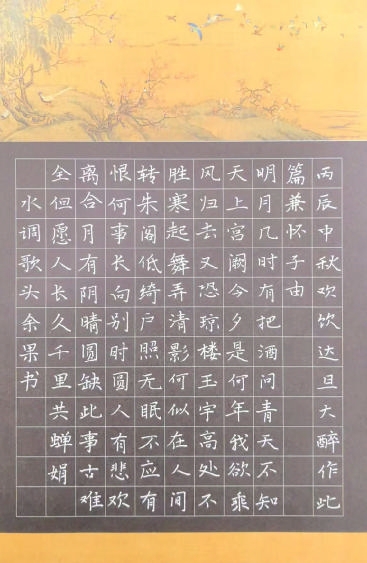 丙辰中秋欢饮达旦大醉作此
篇兼怀子由
明月几时有把酒问青天不知
天上宫阙今夕是何年我欲乘
风归去又恐琼楼玉宇高处不
胜寒起舞弄清影何似在人间
转朱阁低绮户照无眠不应有
恨何事长向别时圆人有悲欢
离合月有阴晴圆缺此事古难
全但愿人长久千里共蝉娟
水调歌头余果书